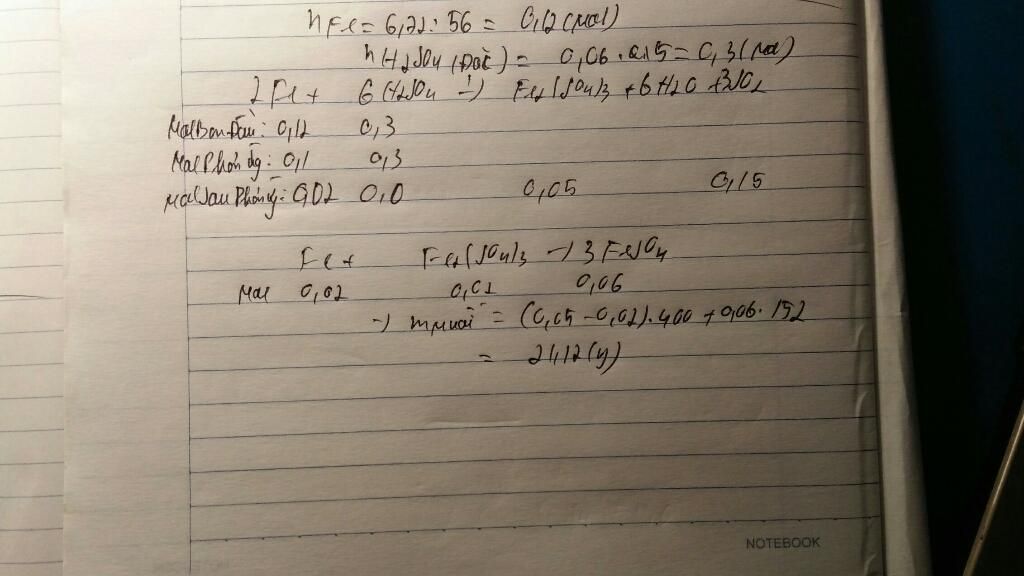 nFe = 6,72 : 56 = 0,12 (mol)
nH2SO4 (Đặc) = 0,06 . = 0,3 (mol)
2Fe + 6H2SO4 → Fe2(SO4)3 + 6H2O + 3SO2
Mol Ban Đầu: 0,12 0,3
Mol Phản ứg: 0,1 0,3
Mol Sau Phản ứ: 0,02 0,0 0,05 0,15
Fe + Fe2(SO4)3 → 3FeSO4
Mol 0,02 0,02 0,06
→ m muối = (0,05 - 0,02).400 + 0,06.152
= 21,12 (g)
NOTEBOOK